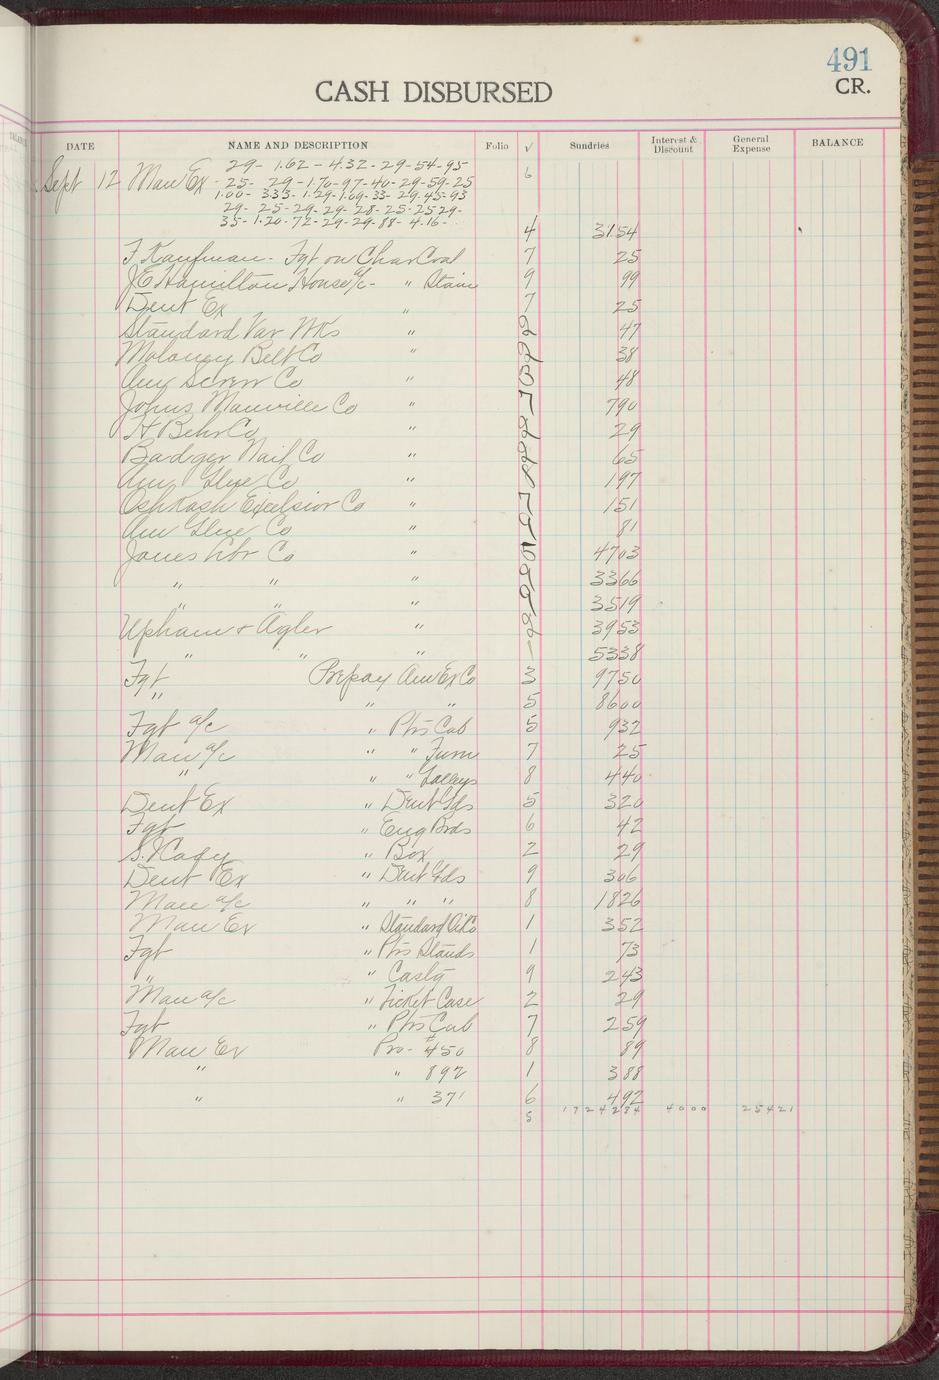 491
CASH DISBURSED CR.
DATE NAME AND DESCRIPTION Folio √ Sundries Interest & Discount General Expense BALANCE
29- 1.62 - 4.32 - 29-54-95
Sept 12 Man Ex - 25- 29-1.70-97-40-29-59-25 6
1.00- 333- 1.29-1.09-33- 29-45-93
29- 25-29-29-28-25-25 29-
35-1.20-72-29-29-88- 4.16- 4 3154
F Kaufman - Fgt on CharCoal 7 25
JE Hamilton House a/c - " Stain 9 99
Dent Ex " 7 25
Standard Var Wks " 47
Moloney Belt Co " 38
Am Screw Co " 48
Johns Manville Co " 790
H Behr Co " 29
Badger Nail Co " 65
Am Glue Co " 197
Oshkosh Excelsior Co " 151
Am Glue Co " 81
Jones Lbr Co " 4703
" " " 3366
" " " 3519
Upham & Agler " 3953
" " " 5338
Fgt Prepay Am Ex Co 3 9750
" " " 5 8600
Fgt a/c " Ptrs Cab 5 932
Man a/c " " Furn 7 25
" " " Galleys 8 440
Dent Ex " Dent Gds 5 320
Fgt " Eng Brds 6 42
S. Kady " Box 2 29
Dent Ex " Dent Gds 9 306
Man a/c " " " 8 1826
Man Ex " Standard Oil Co 1 352
Fgt " Ptrs Stands 1 73
" " Castg 9 243
Man a/c " Ticket Case 2 29
Fgt " Ptrs Cab 7 259
Man Ex Pro- #450 8 89
" " 892 1 388
" " 371 6 492
5 1724234 4000 25421